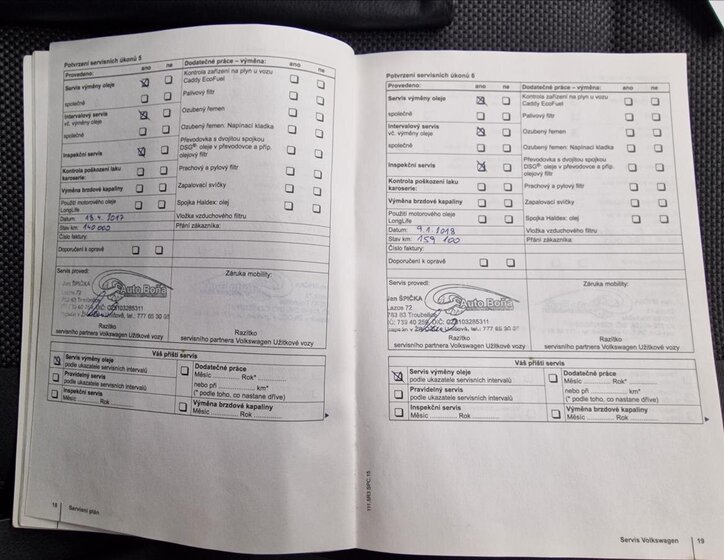 Potvrzení servisních úkonů 5
Provedeno: ano ne
Servis výměny oleje
společně
Intervalový servis
vč. výměny oleje
společně
Inspekční servis
Kontrola poškození laku
karoserie:
Výměna brzdové kapaliny
Použití motorového oleje
LongLife
Datum: 18.4.2017
Stav km: 140 000
Číslo faktury:
Doporučení k opravě
Dodatečné práce – výměna: ano ne
Kontrola zařízení na plyn u vozu
Caddy EcoFuel
Palivový filtr
Ozubený řemen
Ozubený řemen: Napínací kladka
Převodovka s dvojitou spojkou
DSG®: oleje v převodovce a příp.
olejový filtr
Prachový a pylový filtr
Zapalovací svíčky
Spojka Haldex: olej
Vložka vzduchového filtru
Přání zákazníka:
Servis provedl:
Jan ŠPIČKA
Lazce 72
783 83 Troubelice
Auto Boňa
Razítko
servisního partnera Volkswagen Užitkové vozy
Záruka mobility:
Razítko
servisního partnera Volkswagen Užitkové vozy
Váš příští servis
Servis výměny oleje
podle ukazatele servisních intervalů
Pravidelný servis
podle ukazatele servisních intervalů
Inspekční servis
Měsíc Rok
Dodatečné práce
Měsíc Rok*
nebo při km*
(* podle toho, co nastane dříve)
Výměna brzdové kapaliny
Měsíc Rok
18 Servisní plán
Potvrzení servisních úkonů 6
Provedeno: ano ne
Servis výměny oleje
společně
Intervalový servis
vč. výměny oleje
společně
Inspekční servis
Kontrola poškození laku
karoserie:
Výměna brzdové kapaliny
Použití motorového oleje
LongLife
Datum: 9.1.2018
Stav km: 159 100
Číslo faktury:
Doporučení k opravě
Dodatečné práce – výměna: ano ne
Kontrola zařízení na plyn u vozu
Caddy EcoFuel
Palivový filtr
Ozubený řemen
Ozubený řemen: Napínací kladka
Převodovka s dvojitou spojkou
DSG®: oleje v převodovce a příp.
olejový filtr
Prachový a pylový filtr
Zapalovací svíčky
Spojka Haldex: olej
Vložka vzduchového filtru
Přání zákazníka:
Servis provedl:
Jan ŠPIČKA
Lazce 72
783 83 Troubelice
Auto Boňa
Razítko
servisního partnera Volkswagen Užitkové vozy
Záruka mobility:
Razítko
servisního partnera Volkswagen Užitkové vozy
Váš příští servis
Servis výměny oleje
podle ukazatele servisních intervalů
Pravidelný servis
podle ukazatele servisních intervalů
Inspekční servis
Měsíc Rok
Dodatečné práce
Měsíc Rok*
nebo při km*
(* podle toho, co nastane dříve)
Výměna brzdové kapaliny
Měsíc Rok
111.5R3.SPC.15
Servis Volkswagen 19